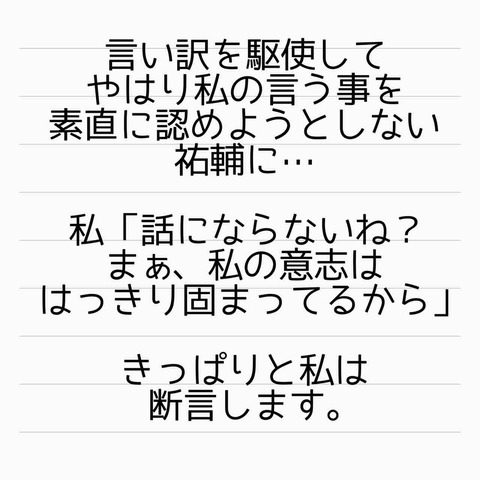 言い訳を駆使して
やはり私の言う事を
素直に認めようとしない
祐輔に…
私「話にならないね？
まぁ、私の意志は
はっきり固まってるから」
きっぱりと私は
断言します。